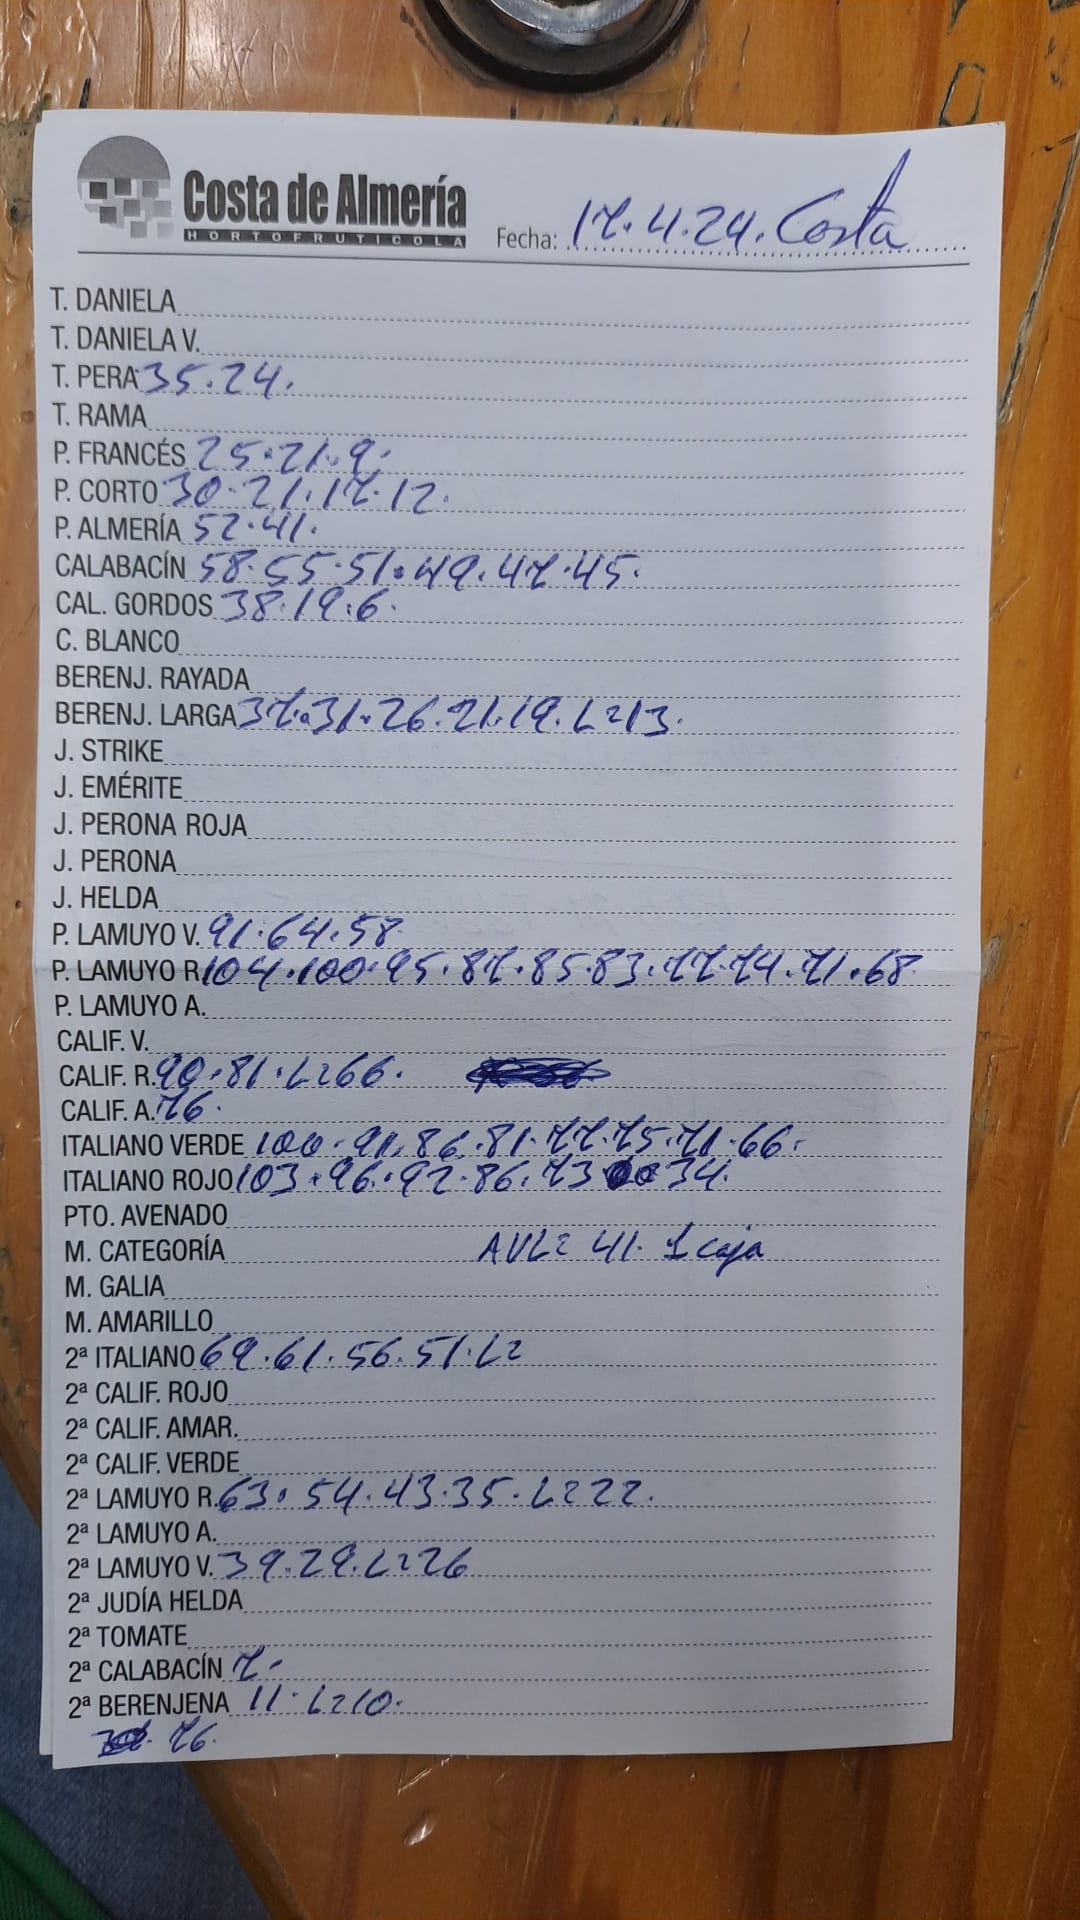 Costa de Almería
HORTOFRUTICOLA
Fecha: 17.4.24. Costa
T. DANIELA
T. DANIELA V.
T. PERA 35.24.
T. RAMA
P. FRANCÉS 25.21.9.
P. CORTO 30.21.17.12.
P. ALMERÍA 52.41.
CALABACÍN 58.55.51.49.47.45.
CAL. GORDOS 38.19.6.
C. BLANCO
BERENJ. RAYADA
BERENJ. LARGA 37.31.26.21.19.L=13.
J. STRIKE
J. EMÉRITE
J. PERONA ROJA
J. PERONA
J. HELDA
P. LAMUYO V. 91.64.58
P. LAMUYO R. 104.100.95.87.85.83.77.74.71.68.
P. LAMUYO A.
CALIF. V.
CALIF. R. 90.81.L=66.
CALIF. A. 76.
ITALIANO VERDE 100.91.86.81.77.75.71.66.
ITALIANO ROJO 103.96.92.86.73 34.
PTO. AVENADO
M. CATEGORÍA AVL= 41. 1 caja
M. GALIA
M. AMARILLO
2ª ITALIANO 69.61.56.51.L=
2ª CALIF. ROJO
2ª CALIF. AMAR.
2ª CALIF. VERDE
2ª LAMUYO R. 63.54.43.35.L=22.
2ª LAMUYO A.
2ª LAMUYO V. 39.29.L=26
2ª JUDÍA HELDA
2ª TOMATE
2ª CALABACÍN 7.
2ª BERENJENA 11.L=10.
76.